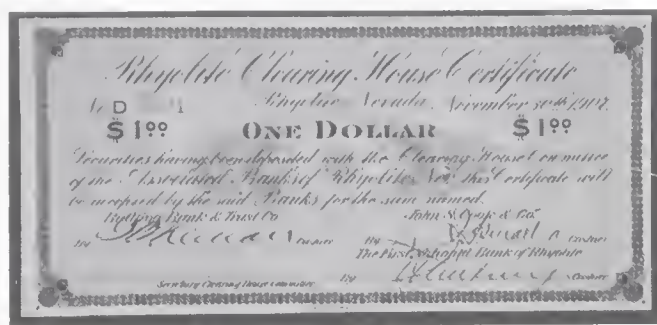 Rhyolite Clearing House Certificate
No. D Rhyolite Nevada, November 1907.
$1.00 ONE DOLLAR $1.00
Securities having been deposited with the Clearing House Committee
of the Associated Banks of Rhyolite, Nev. this Certificate will
be accepted by the said Banks for the sum named.
Bullfrog Bank & Trust Co. John S. Cook & Co.
By Cashier By Cashier
The First National Bank of Rhyolite
Secretary Clearing House Committee By Cashier